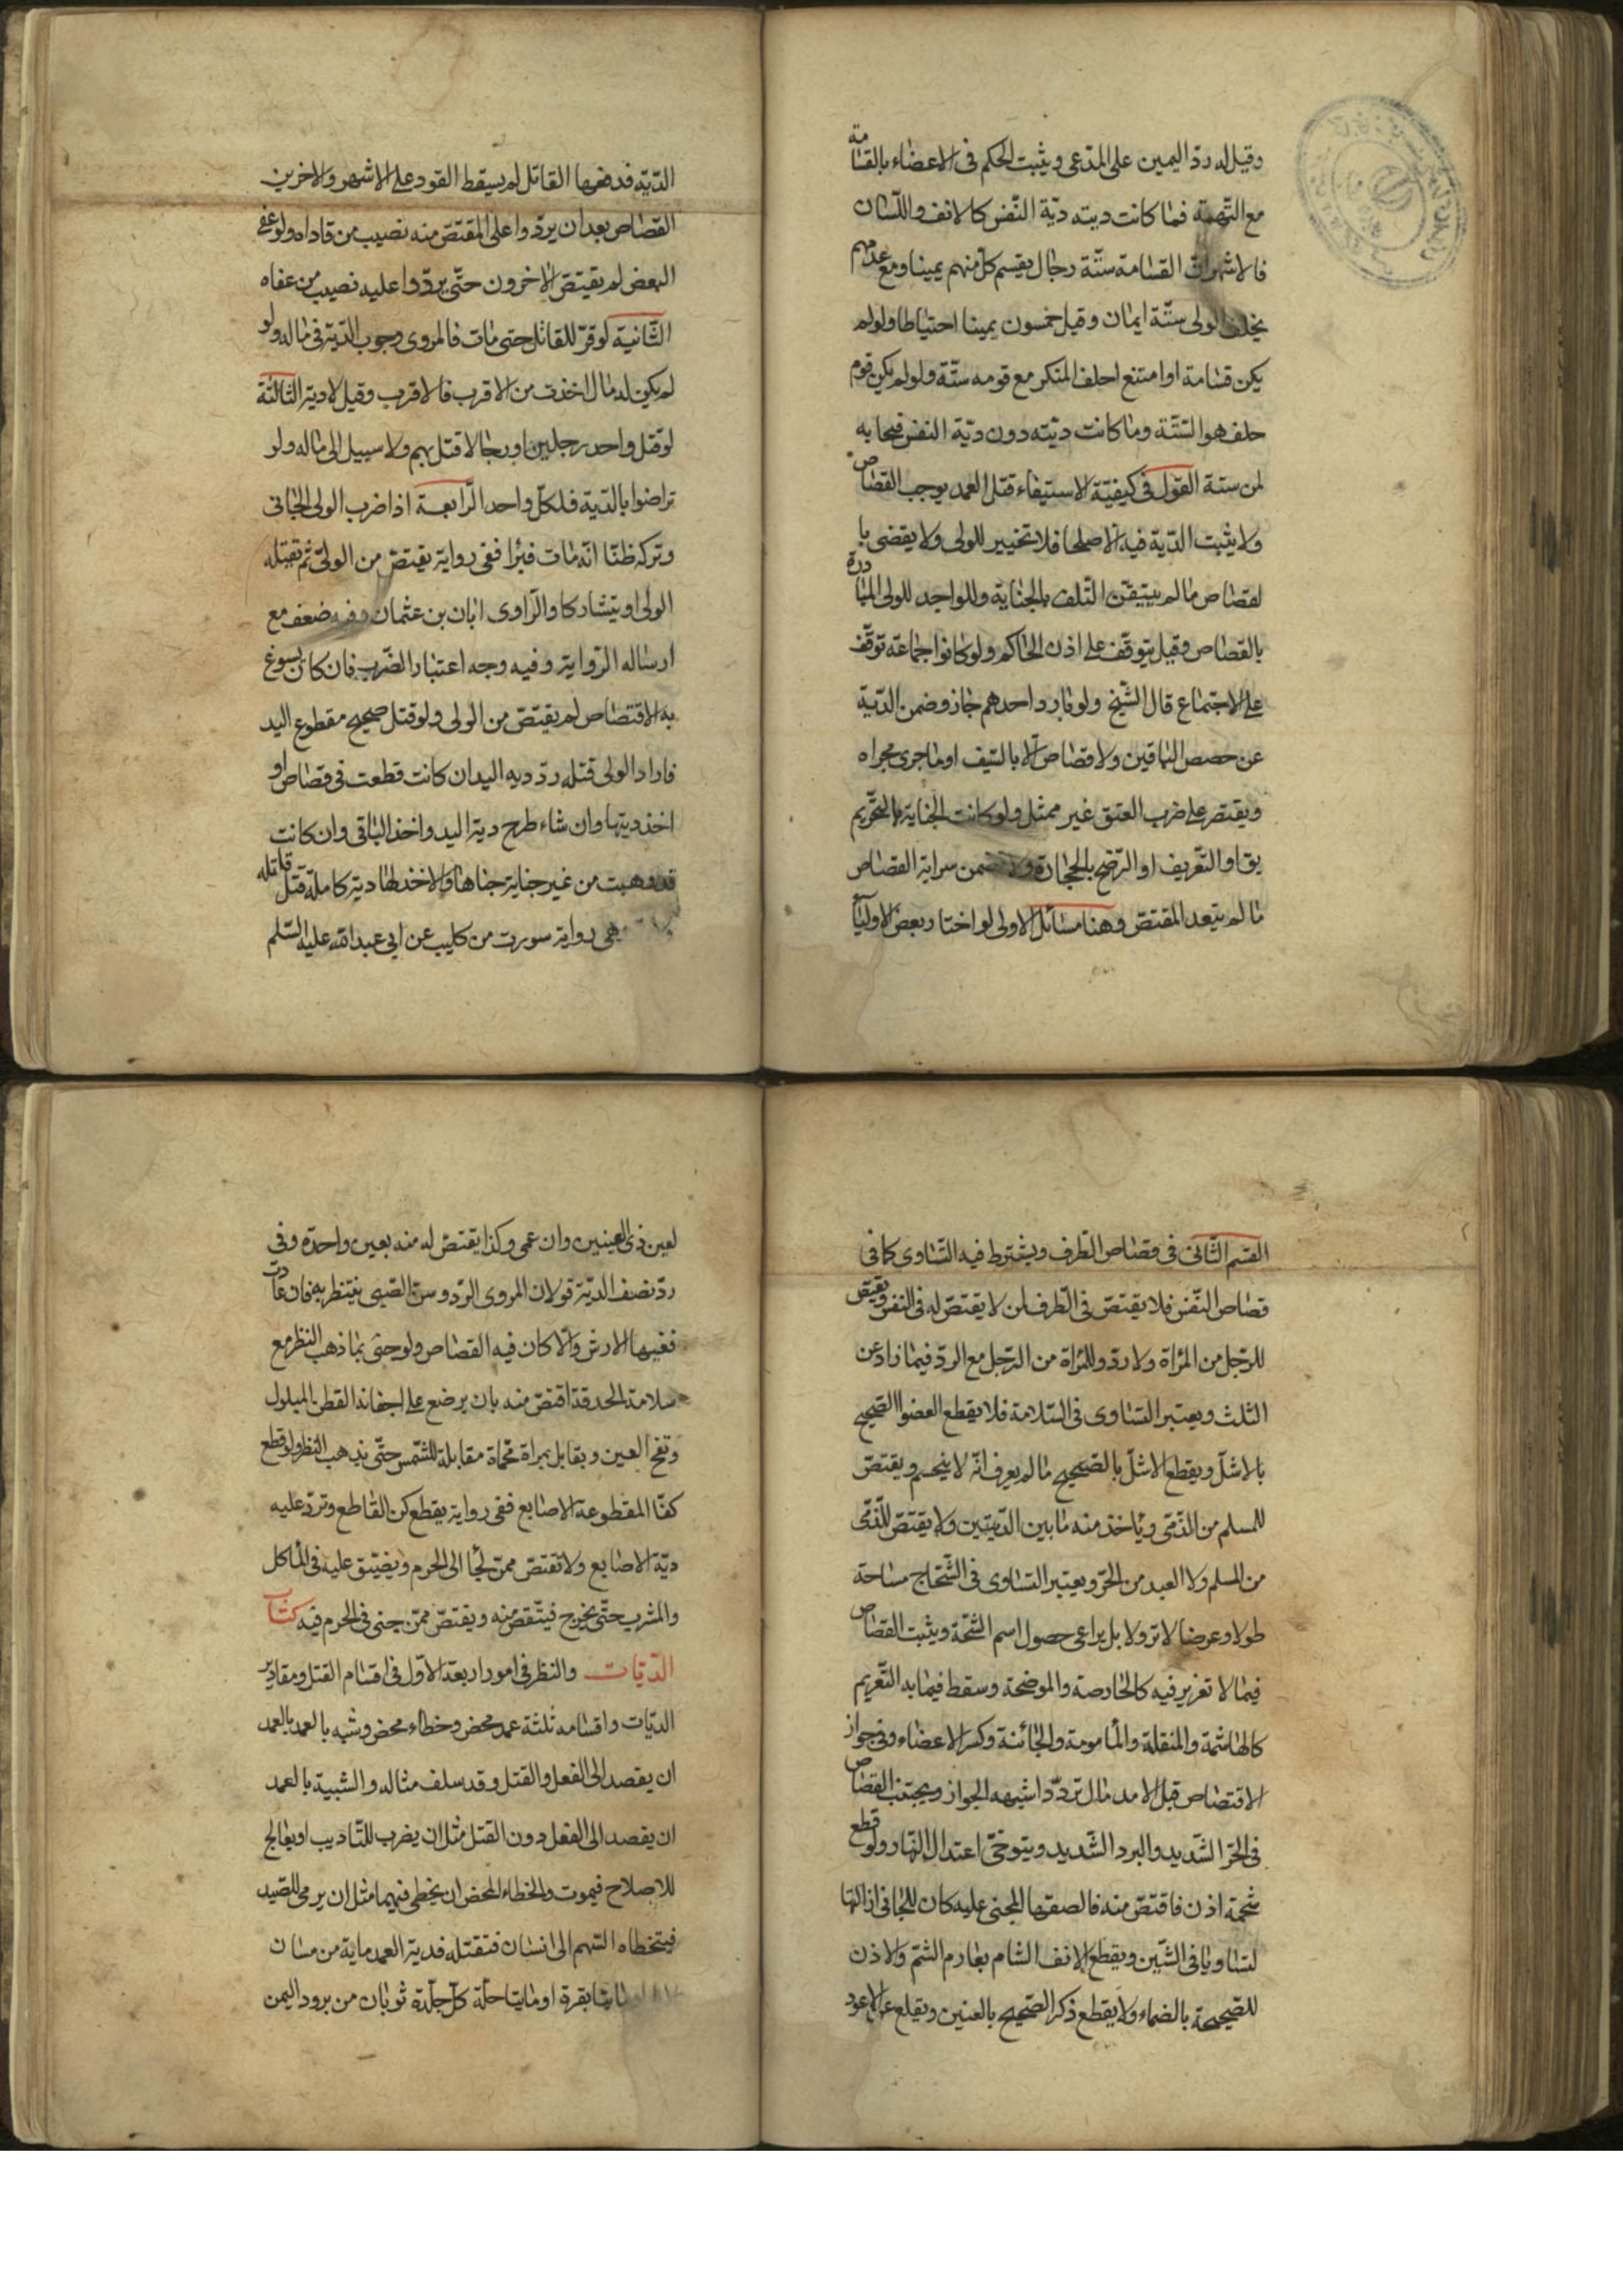 وقيل له ردّ اليمين على المدّعى ويثبت الحكم فى الاعضاء بالقسامة
مع التّهمة فما كانت ديته ديّة النّفس كالانف واللّسان
فالاشهر انّ القسامة ستّة رجال يقسم كلّ منهم يمينا ومع عدمهم
يحلف الولى ستّة ايمان وقيل خمسون يمينا احتياطا ولو لم
يكن قسامة او امتنع احلف المنكر مع قومه ستّة ولو لم يكن قوم
حلف هو السّتّة وما كانت ديّته دون ديّة النفس فبحسابه
من ستة القول فى كيفيّة الاستيفاء قتل العمد يوجب القصاص
ولا يثبت الدّية فيه الّا صلحا فلا تخيير للولى ولا يقضى با
لقصاص ما لم يتيقّن التّلف بالجناية وللواحد للولى المبادرة
بالقصاص وقيل يتوقّف على اذن الحاكم ولو كانوا جماعة توقّف
على الاجتماع قال الشّيخ ولو بادر احدهم جاز وضمن الدّية
عن حصص الباقين ولا قصاص الّا بالسّيف او ما جرى مجراه
ويقتصر على ضرب العنق غير ممثل ولو كانت الجناية بالتحريم
يق او التّغريف او الرّضح بالحجارة ولا تضمن سراية القصاص
ما لم يتعد المقتصّ وهنا مسائل الاولى لو اختار بعض الاوليآ
الدّيّة فدفعها القاتل لم يسقط القود على الاشهر والاخرين
القصاص بعد ان يردّوا على المقتصّ منه نصيب من فاداه ولو عفى
البعض لم يقتصّ الاخرون حتّى يردّوا عليه نصيب من عفاه
الثّانية لو فرّ للقاتل حتى مات فالمروى وجوب الدّية فى ماله ولو
لم يكن له مال اخذت من الاقرب فالاقرب وقيل لا دية الثالثة
لو قتل واحد رجلين او رجالا قتل بهم ولا سبيل الى ماله ولو
تراضوا بالدّية فلكلّ واحد الرّابعة اذا ضرب الولى الجانى
وتركه ظنّا انّه مات فبرا ففى رواية يقتصّ من الولىّ ثم يقتله
الولى او يتشاركا والرّاوى ابان بن عثمان وفيه ضعف مع
ارساله الرّواية وفيه وجه اعتبار الضّرب فان كان يسوغ
به الاقتصاص لم يقتصّ من الولى ولو قتل صحيح مقطوع اليد
فاراد الولى قتله ردّ ديه اليد ان كانت قطعت فى قصاص او
اخذ ديتها وان شاء طرح دية اليد واخذ الباقى وان كانت
قد وهبت من غير جناية جناها ولا اخذ لها دية كاملة قتل قاتله
هى رواية سورت من كليب عن ابى عبد الله عليه السّلم
القسم الثّانى فى قصاص الطّرف ويشترط فيه التّساوى كما فى
قصاص النّفس فلا يقتصّ فى الطّرف لمن لا يقتصّ له فى النفس ويقتص
للرّجل من المراة ولا ردّ وللمراة من الرّجل مع الردّ فيما زاد عن
الثلث ويعتبر التساوى فى السّلامة فلا يقطع العضو الصّحيح
بالاشلّ ويقطع الاشلّ بالصّحيح ما لم يعرف انّه لا ينحسم ويقتصّ
للمسلم من الذّمّى ويأخذ منه ما بين الدّيتين ولا يقتصّ للذّمّى
من المسلم ولا العبد من الحرّ ويعتبر التساوى فى الشّجاج مساحة
طولا وعرضا لا نزولا بل يراعى حصول اسم الشّجّة ويثبت القصاص
فيما لا تغرير فيه كالحارصة والموضحة وسقط فيما به التّغريم
كالهاشمة والمنقلة والمأمومة والجائفة وكسر الاعضاء وفى جواز
الاقتصاص قبل الاندمال تردّد اشبهه الجواز ويجتنب القصاص
فى الحرّ الشّديد والبرد الشّديد ويتوخّى اعتدال النّهار ولو قطع
شحمة اذن فاقتصّ منه فالصقها المجنى عليه كان للجانى ازالتها
لتساويا فى الشّين ويقطع الانف الشّام بعادم الشّم والاذن
للصّحيحة بالصّماء ولا يقطع ذكر الصّحيح بالعنين ويقلع عين الاعور
لعين ذى العينين وان عمى وكذا يقتصّ له منه بعين واحدة وفى
ردّ نصف الديّة قولان المروى الرّد وسنّ الصّبى ينتظر به فان عادت
ففيها الارش والّا كان فيه القصاص ولو جنى بما ذهب النّظر مع
سلامة الحدقة اقتصّ منه بان يوضع على اجفانه القطن المبلول
وتفتح العين ويقابل بمراة محماة مقابلة للشّمس حتّى يذهب النظر ولو قطع
كفّا المقطوعة الاصابع ففى رواية يقطع كفّ القاطع وتردّ عليه
ديّة الاصابع ولا تقتصّ ممّن لجأ الى الحرم ويضيّق عليه فى المأكل
والمشرب حتّى يخرج فيتّقصّ منه ويقتصّ ممّن جنى فى الحرم فيه كتاب
الدّيّات والنظر فى امور اربعة الاوّل فى اقسام القتل ومقادير
الديّات واقسامه ثلثة عمد محض وخطاء محض وشبه بالعمد بالعمد
ان يقصد الى الفعل والقتل وقد سلف مثاله والشبية بالعمد
ان يقصد الى الفعل دون القتل مثل ان يضرب للتّاديب او يعالج
للاصلاح فيموت والخطاء المحض ان يخطى فيهما مثل ان يرمى للصّيد
فيتخطاه السّهم الى انسان فتقتله فدية العمد ماية من مسان
بقرة او مايتا حلّة كلّ حلّة ثوبان من برود اليمن